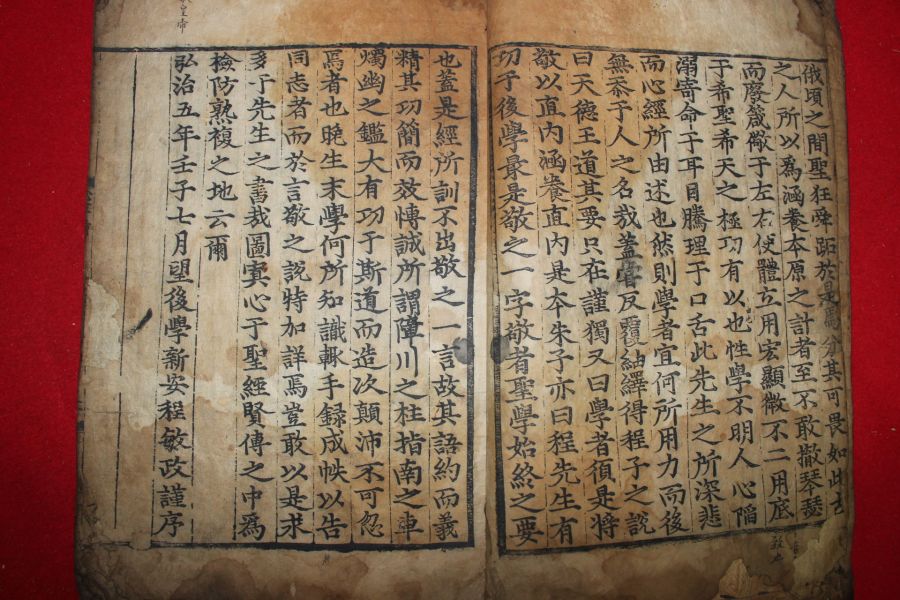 俄頃之間聖狂舜跖於是焉分其可畏如此古
之人所以為涵養本原之計者至不敢撤琴瑟
而廢箴儆于左右使體立用宏顯微不二用底
于希聖希天之極功有以也性學不明人心陷
溺寄命于耳目騰理于口舌此先生之所深悲
而心經所由述也然則學者宜何所用力而後
無忝于人之名哉蓋嘗反覆紬繹得程子之說
曰天德王道其要只在謹獨又曰學者須是將
敬以直內涵養直內是本朱子亦曰程先生有
功于後學最是敬之一字敬者聖學始終之要
也蓋是經所訓不出敬之一言故其語約而義
精其功簡而效愽誠所謂障川之柱指南之車
燭幽之鑑大有功于斯道而造次顛沛不可忽
焉者也晚生末學何所知識輒手録成帙以告
同志者而於言敬之說特加詳焉豈敢以是求
多于先生之書哉圖寘心于聖經賢傳之中為
檢防熟複之地云爾
弘治五年壬子七月望後學新安程敏政謹序
皇帝